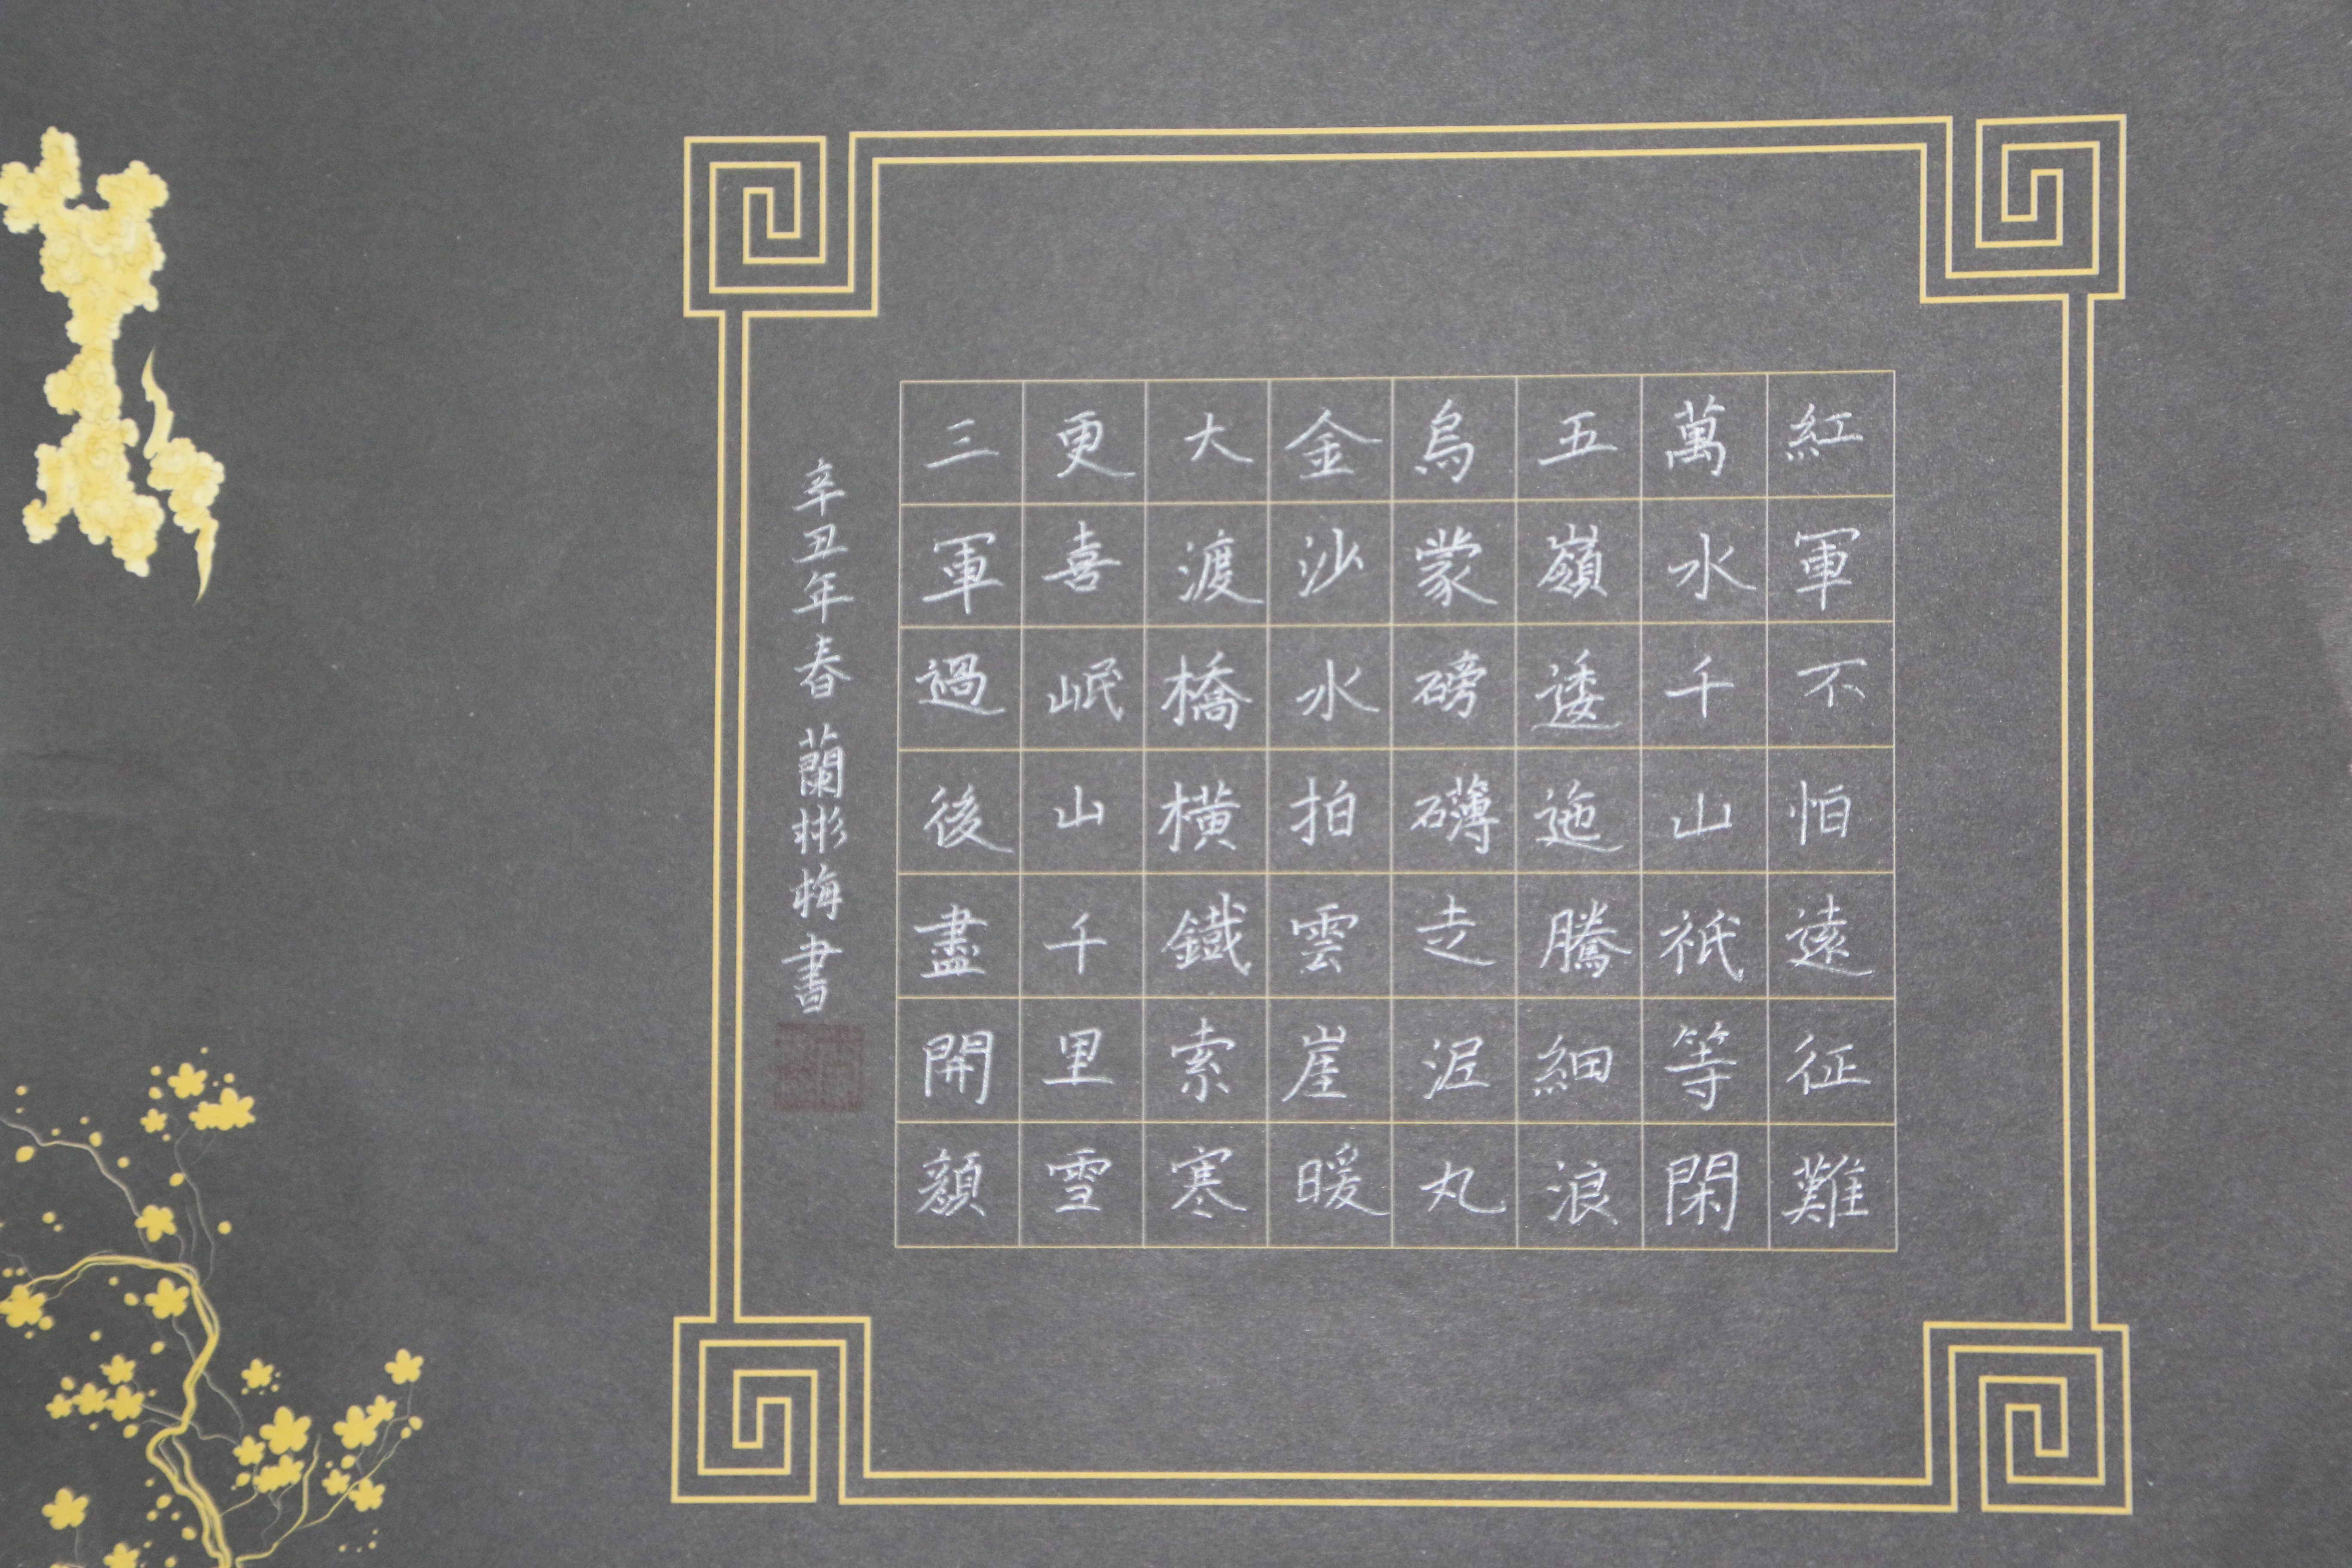 紅軍不怕遠征難
萬水千山祇等閑
五嶺逶迤騰細浪
烏蒙磅礴走泥丸
金沙水拍雲崖暖
大渡橋橫鐵索寒
更喜岷山千里雪
三軍過後盡開顏
辛丑年春 蘭彬梅書